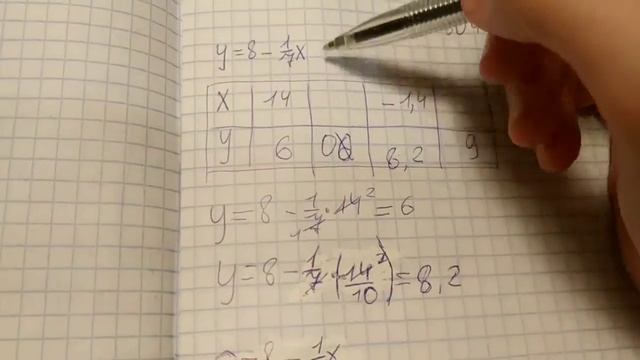 y = 8 - 1/7 x
x 14 -1,4
y 6 0 8,2 9
y = 8 - 1/7 · 14 2 = 6
y = 8 - 1/7 · (-14/10) 2 = 8,2
= 8 - 1/ x